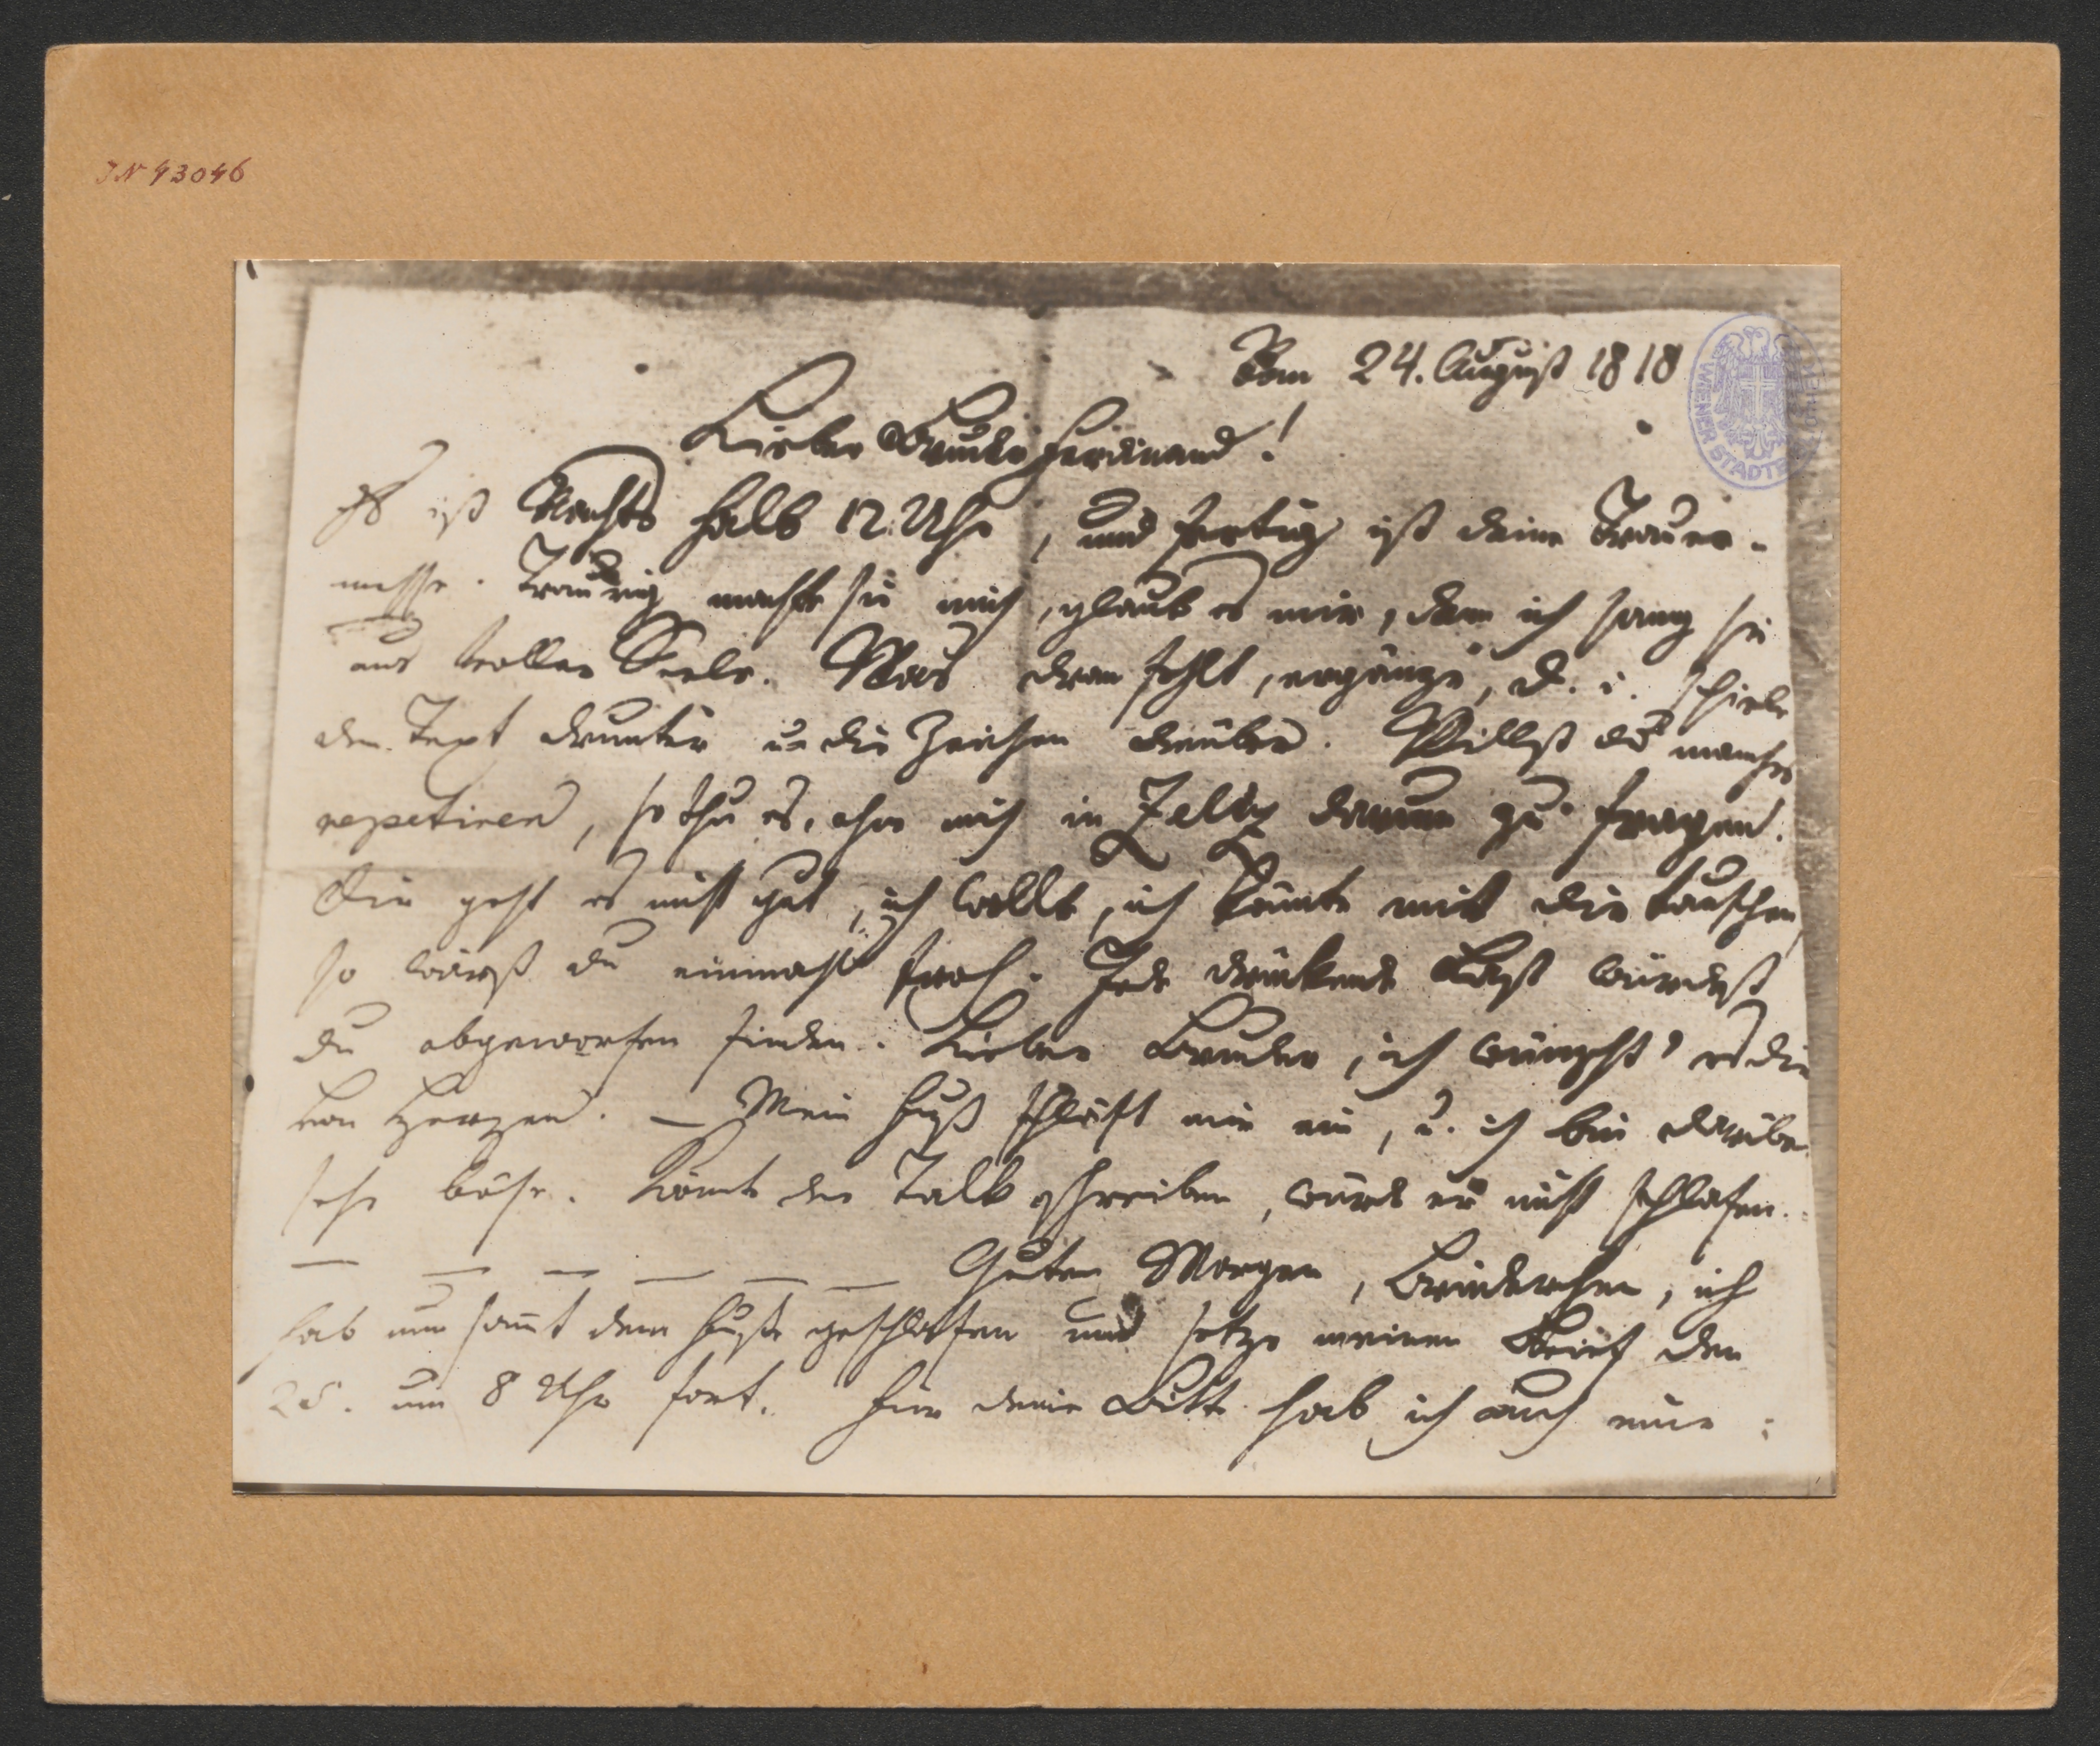 IN 43046
Vom 24. August 1818
WIENER STADT
Lieber Bruder Ferdinand!
Es ist Nachts halb 12 Uhr, und fertig ist deine Trauer-
messe. Traurig machte sie mich, glaub es mir, denn ich sang sie
aus voller Seele. Was dran fehlt, ergänze, d. i. schreibe
den Text drunter u. die Zeichen drüber. Willst du manches
repetiren, so thu es, ohne mich in Zelez darum zu fragen.
Dir geht es nicht gut, ich wollt, ich könnte mit dir tauschen,
so wärst du einmahl froh. Jede drückende Last würdest
du abgeworfen finden. Lieber Bruder, ich wünscht' es dir
von Herzen. – Mein Fuß schläft mir ein, u. ich bin darüber
sehr böse. Könnt der Talk schreiben, würd er nicht schlafen.
– – – – – – Guten Morgen, Brüderchen, ich
hab nun samt dem Fuße geschlafen und setze meinen Brief den
25. um 8 Uhr fort. Für deine Bitte hab ich auch eine: